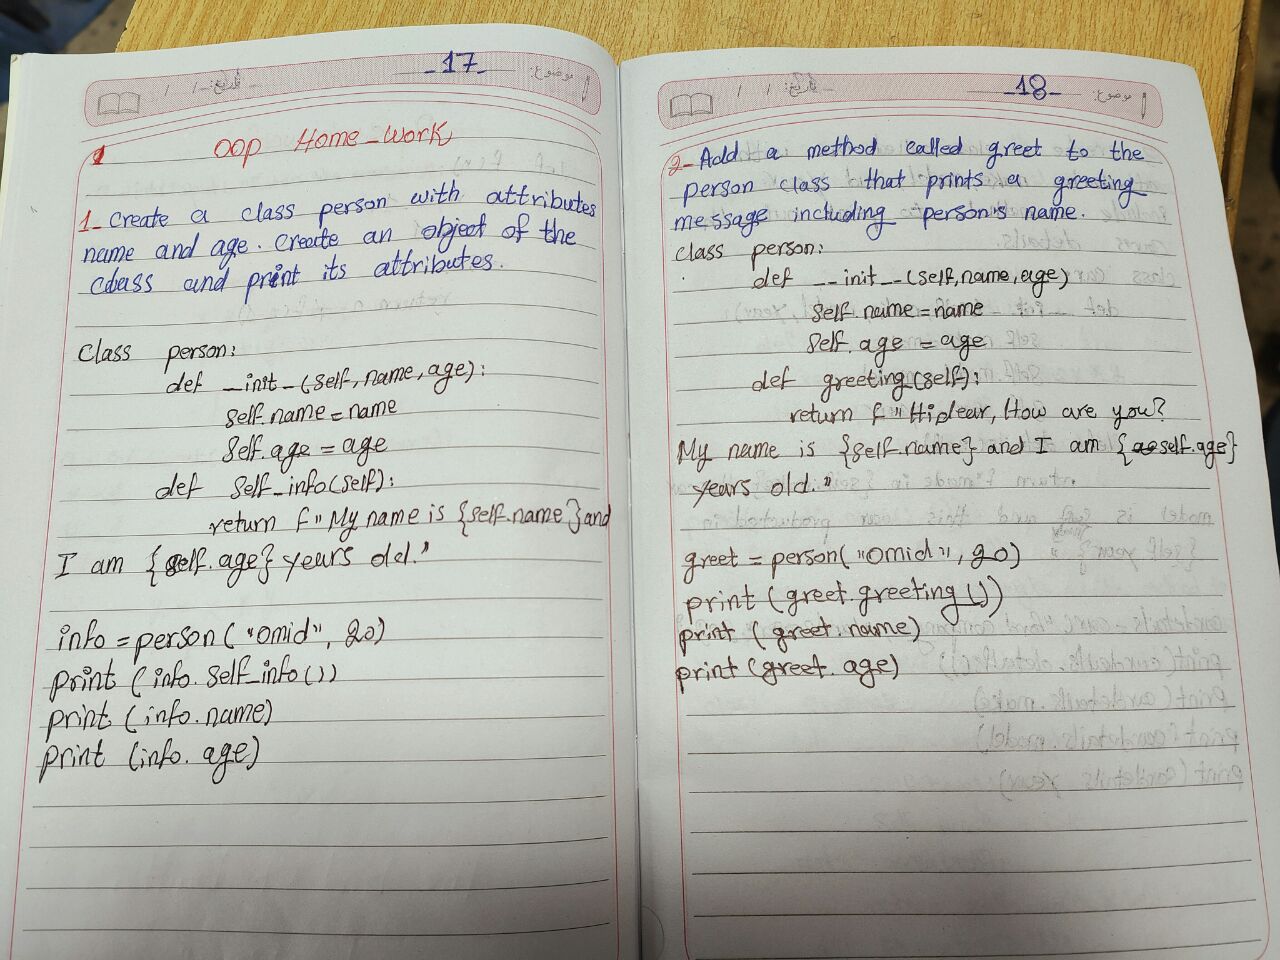 -17-
موضوع:
تاریخ: / /
1
OOP Home_Work
1_ Create a class person with attributes
name and age. Create an object of the
class and print its attributes.
Class person:
def _init_(self, name, age):
self.name = name
self.age = age
def self_info(self):
return f"My name is {self.name} and
I am {self.age} years old."
info = person("omid", 20)
print (info.self_info())
print (info.name)
print (info.age)
-18-
موضوع:
تاریخ: / /
2_ Add a method called greet to the
person class that prints a greeting
message including person's name.
class person:
def __init__(self, name, age)
self.name = name
self.age = age
def greeting(self):
return f"Hi dear, How are you?
My name is {self.name} and I am {self.age}
years old."
greet = person("omid", 20)
print (greet.greeting())
print (greet.name)
print (greet.age)